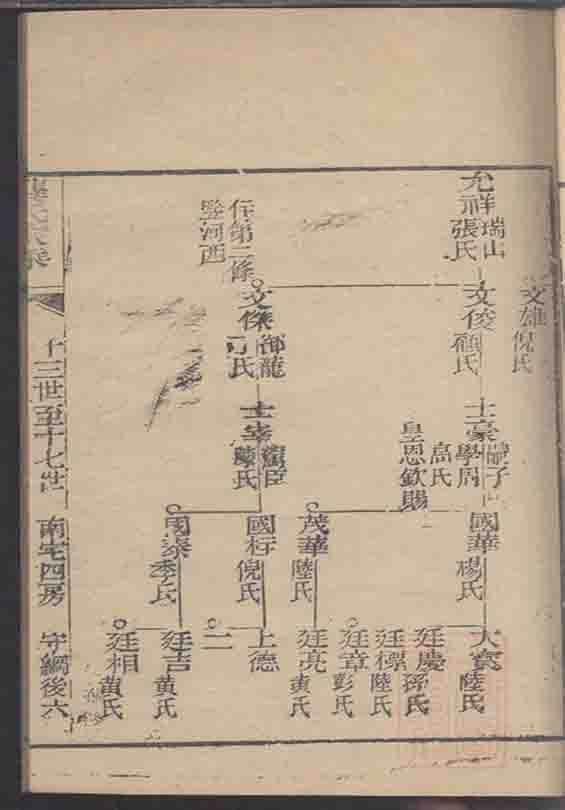 文雄
倪氏
允祥
瑞山
張氏
文俊
顧氏
士豪
學周
高氏
皇恩欽賜
國華
楊氏
陸氏
廷慶
孫氏
廷標
陸氏
廷章
彭氏
茂華
陸氏
廷亮
黃氏
住第二條
豎河西
文傑
御龍
氏
士宰
陳氏
國标
倪氏
上德
二
國泰
季氏
廷吉
黃氏
廷相
黃氏
十三世至十七世
南宅四房
守綱後六